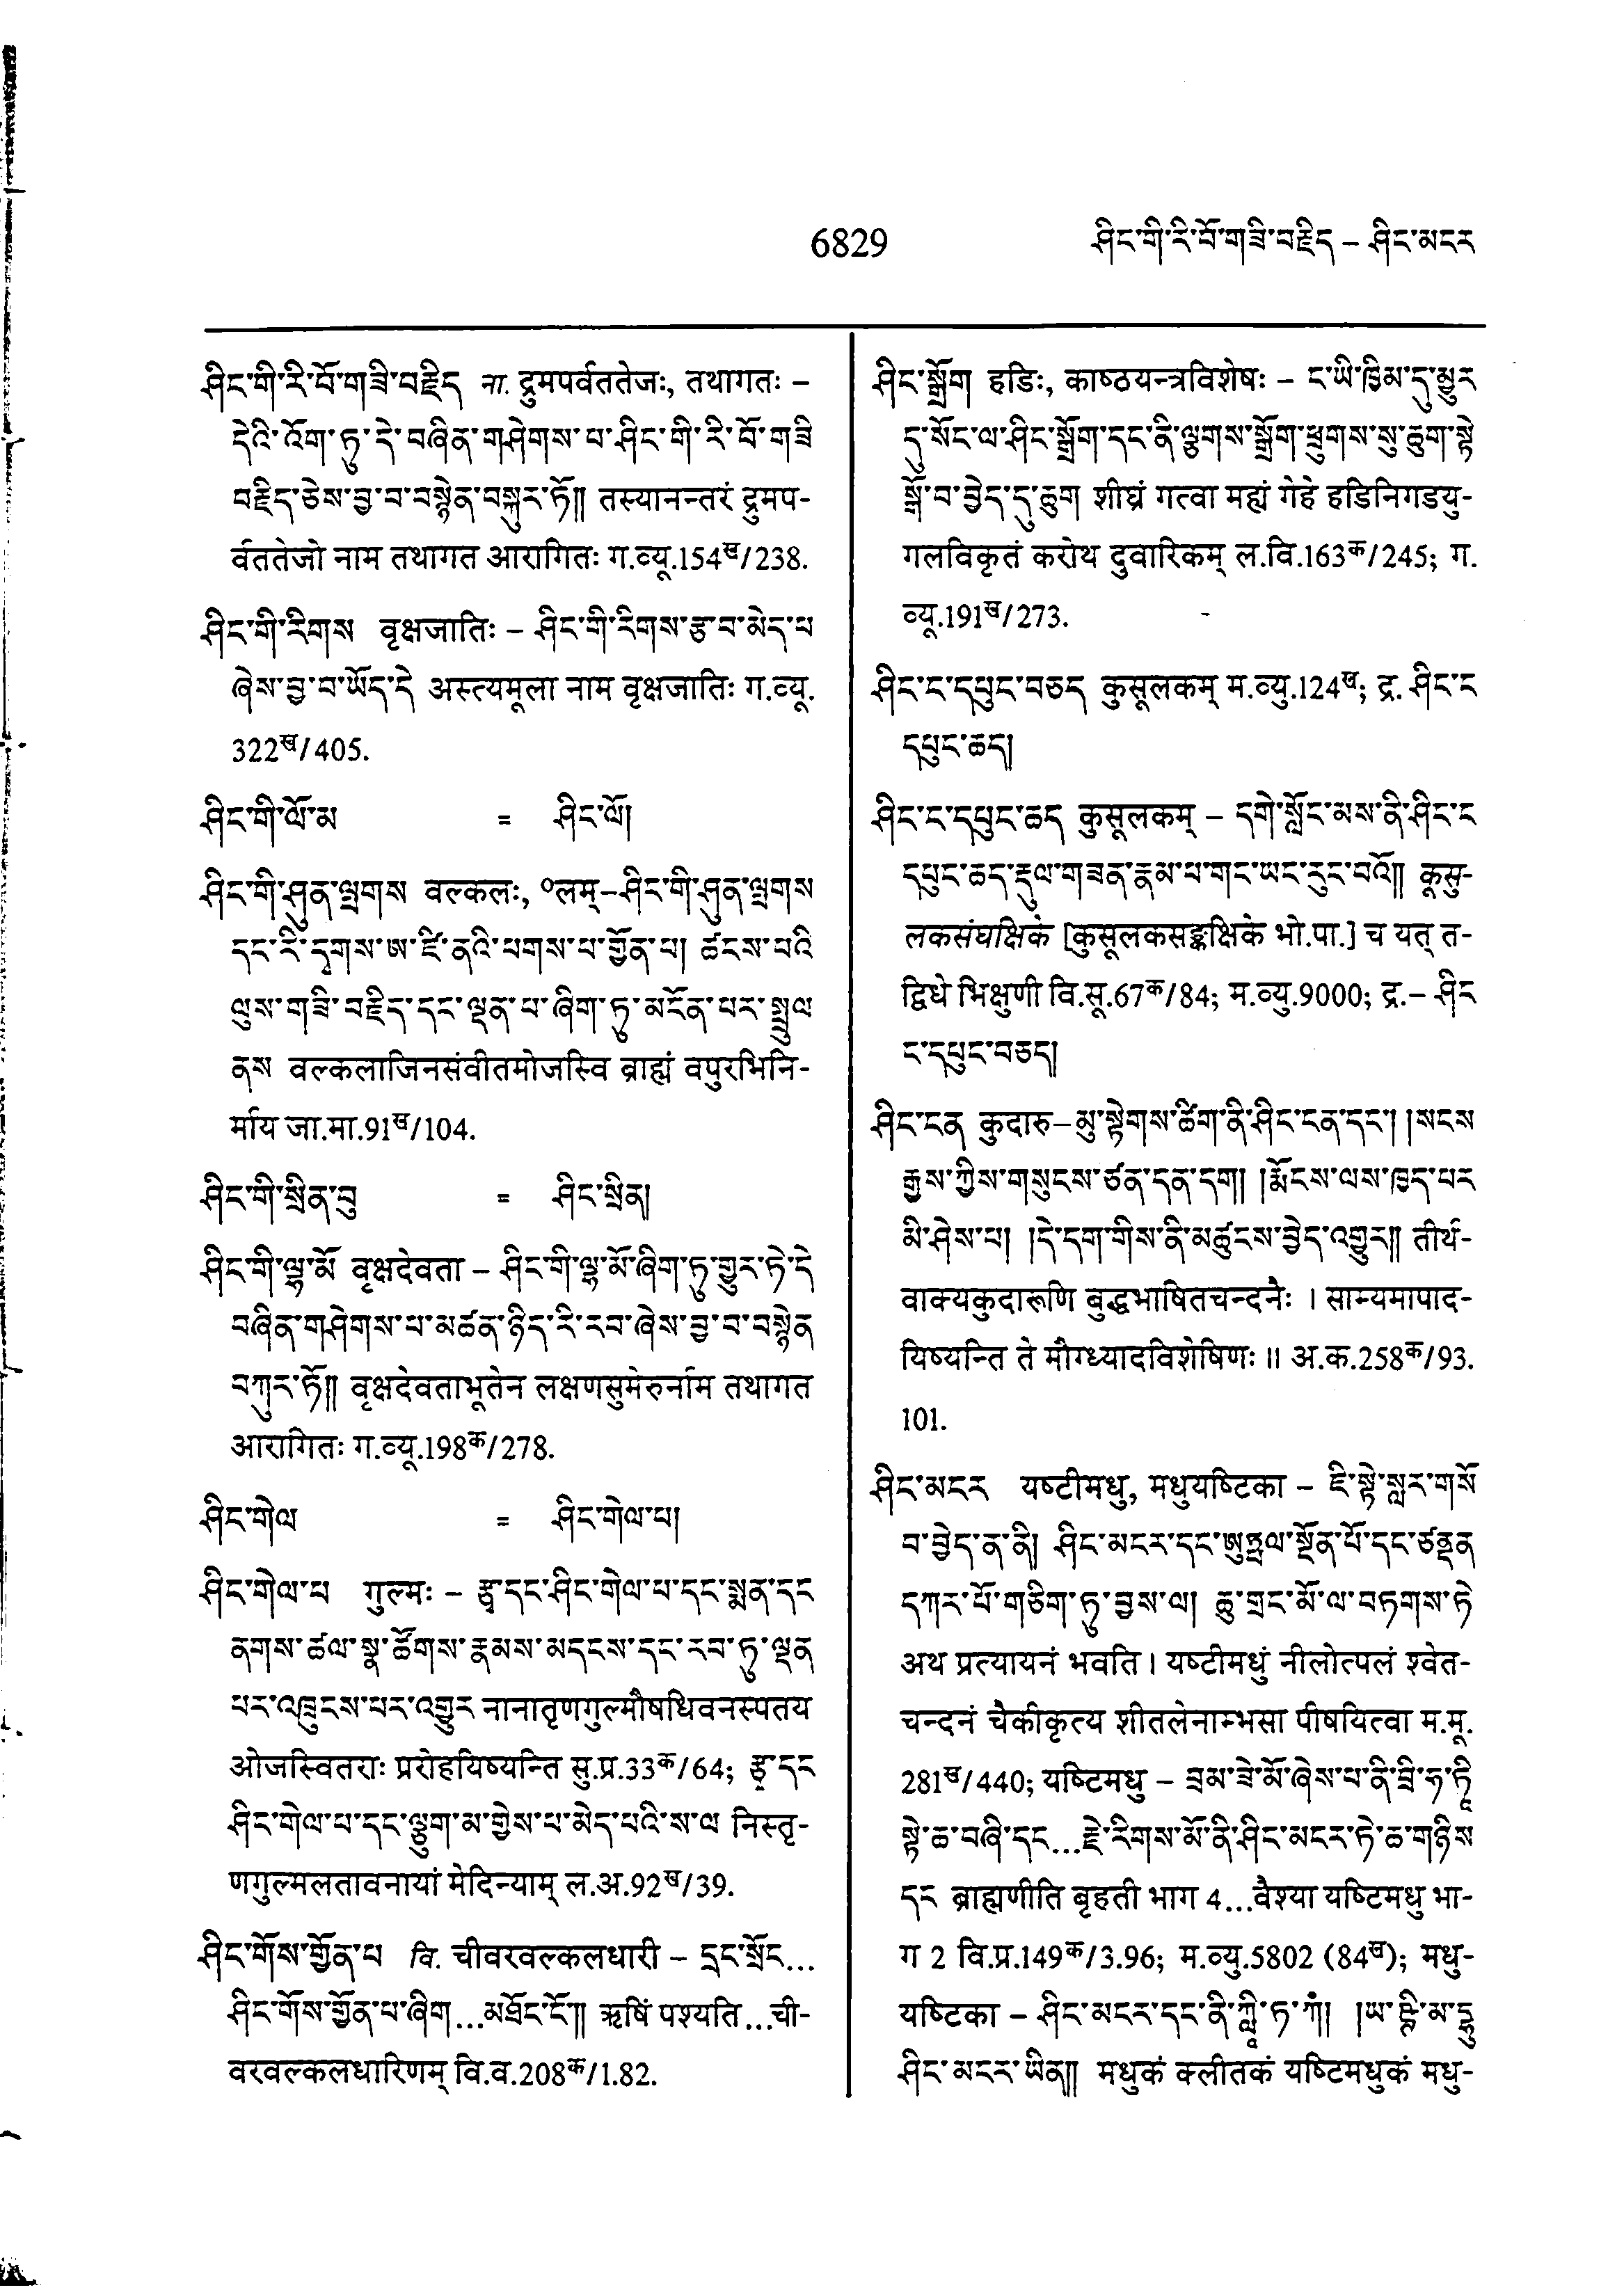 6829
ཤིང་གི་རི་བོ་གཟི་བརྗིད – ཤིང་མངར
ཤིང་གི་རི་བོ་གཟི་བརྗིད ना. द्रुमपर्वततेजः, तथागतः –
དེའི་འོག་ཏུ་དེ་བཞིན་གཤེགས་པ་ཤིང་གི་རི་བོ་གཟི
བརྗིད་ཅེས་བྱ་བ་བསྙེན་བསྐུར་ཏོ།། तस्यानन्तरं द्रुमप-
र्वततेजो नाम तथागत आरागितः ग.व्यू.154ख/238.
ཤིང་གི་རིགས वृक्षजातिः – ཤིང་གི་རིགས་རྩ་བ་མེད་པ
ཞེས་བྱ་བ་ཡོད་དེ अस्त्यमूला नाम वृक्षजातिः ग.व्यू.
322ख/405.
ཤིང་གི་ལོ་མ = ཤིང་ལོ།
ཤིང་གི་ཤུན་ལྤགས वल्कलः, ०लम्–ཤིང་གི་ཤུན་ལྤགས
དང་རི་དྭགས་ཨ་ཛི་ནའི་པགས་པ་གྱོན་པ། ཚངས་པའི
ལུས་གཟི་བརྗིད་དང་ལྡན་པ་ཞིག་ཏུ་མངོན་པར་སྤྲུལ
ནས वल्कलाजिनसंवीतमोजस्वि ब्राह्मं वपुरभिनि-
र्माय जा.मा.91ख/104.
ཤིང་གི་སྲིན་བུ = ཤིང་སྲིན།
ཤིང་གི་ལྷ་མོ वृक्षदेवता – ཤིང་གི་ལྷ་མོ་ཞིག་ཏུ་གྱུར་ཏེ་དེ
བཞིན་གཤེགས་པ་མཚན་ཉིད་རི་རབ་ཞེས་བྱ་བ་བསྙེན
བཀུར་ཏོ།། वृक्षदेवताभूतेन लक्षणसुमेरुर्नाम तथागत
आरागितः ग.व्यू.198क/278.
ཤིང་གེལ = ཤིང་གེལ་པ།
ཤིང་གེལ་པ गुल्मः – རྩྭ་དང་ཤིང་གེལ་པ་དང་སྨན་དང
ནགས་ཚལ་སྣ་ཚོགས་རྣམས་མདངས་དང་རབ་ཏུ་ལྡན
པར་འཁྲུངས་པར་འགྱུར नानातृणगुल्मौषधिवनस्पतय
ओजस्वितराः प्ररोहयिष्यन्ति सु.प्र.33क/64; རྩྭ་དང
ཤིང་གེལ་པ་དང་ལྕུག་མ་གྱེས་པ་མེད་པའི་ས་ལ निस्तृ-
णगुल्मलतावनायां मेदिन्याम् ल.अ.92ख/39.
ཤིང་གོས་གྱོན་པ वि. चीवरवल्कलधारी – དྲང་སྲོང...
ཤིང་གོས་གྱོན་པ་ཞིག...མཐོང་ངོ༌།། ऋषिं पश्यति...ची-
वरवल्कलधारिणम् वि.व.208क/1.82.
ཤིང་སྒྲོག हडिः, काष्ठयन्त्रविशेषः – ང་ཡི་ཁྱིམ་དུ་མྱུར
དུ་སོང་ལ་ཤིང་སྒྲོག་དང་ནི་ལྕགས་སྒྲོག་ཕྲུགས་སུ་ཆུག་སྟེ
སྒོ་བ་བྱེད་དུ་ཆུག शीघ्रं गत्वा मह्यं गेहे हडिनिगडयु-
गलविकृतं करोथ दुवारिकम् ल.वि.163क/245; ग.
व्यू.191ख/273.
ཤིང་ང་དཔུང་བཅད कुसूलकम् म.व्यु.124ख; द्र. ཤིང་ང
དཔུང་ཆད།
ཤིང་ང་དཔུང་ཆད कुसूलकम् – དགེ་སློང་མས་ནི་ཤིང་ང
དཔུང་ཆད་རྡུལ་གཟན་རྣམ་པ་གང་ཡང་རུང་བའོ།། कूसु-
लकसंघक्षिकं [कुसूलकसङ्कक्षिकं भो.पा.] च यत् त-
द्विधे भिक्षुणी वि.सू.67क/84; म.व्यु.9000; द्र.– ཤིང
ང་དཔུང་བཅད།
ཤིང་ངན कुदारु–མུ་སྟེགས་ཚིག་ནི་ཤིང་ངན་དང་། །སངས
རྒྱས་ཀྱིས་གསུངས་ཙན་དན་དག། །རྨོངས་ལས་ཁྱད་པར
མི་ཤེས་པ། །དེ་དག་གིས་ནི་མཚུངས་བྱེད་འགྱུར།། तीर्थ-
वाक्यकुदारूणि बुद्धभाषितचन्दनैः । साम्यमापाद-
यिष्यन्ति ते मौग्ध्यादविशेषिणः ॥ अ.क.258क/93.
101.
ཤིང་མངར यष्टीमधु, मधुयष्टिका – ཇི་སྟེ་སླར་གསོ
བ་བྱེད་ན་ནི། ཤིང་མངར་དང་ཨུཏྤལ་སྔོན་པོ་དང་ཙནྡན
དཀར་པོ་གཅིག་ཏུ་བྱས་ལ། ཆུ་གྲང་མོ་ལ་བཏགས་ཏེ
अथ प्रत्यायनं भवति । यष्टीमधुं नीलोत्पलं श्वेत-
चन्दनं चैकीकृत्य शीतलेनाम्भसा पीषयित्वा म.मू.
281ख/440; यष्टिमधु – བྲམ་ཟེ་མོ་ཞེས་པ་ནི་བྲི་ཧ་ཏཱི
སྟེ་ཆ་བཞི་དང...རྗེ་རིགས་མོ་ནི་ཤིང་མངར་ཏེ་ཆ་གཉིས
དང ब्राह्मणीति बृहती भाग 4...वैश्या यष्टिमधु भा-
ग 2 वि.प्र.149क/3.96; म.व्यु.5802 (84ख); मधु-
यष्टिका – ཤིང་མངར་དང་ནི་ཀླཱི་ཏ་ཀཾ། །ཡ་ཥྚི་མ་དྷུ
ཤིང་མངར་ཡིན།། मधुकं क्लीतकं यष्टिमधुकं मधु-